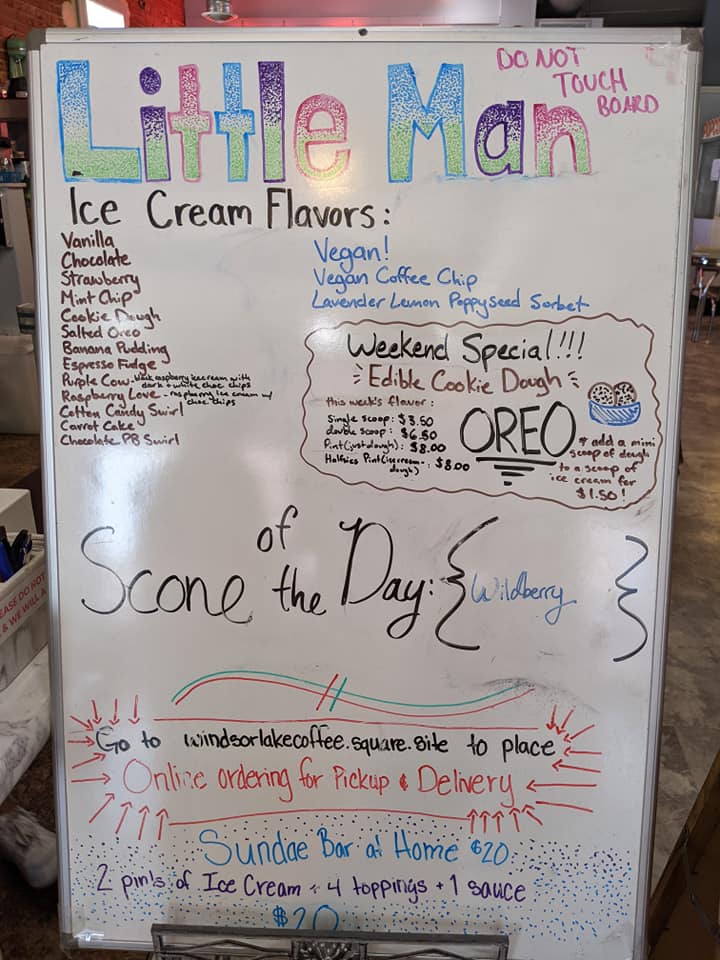 Little Man
DO NOT
TOUCH
BOARD
Ice Cream Flavors:
Vanilla
Chocolate
Strawberry
Mint Chip
Cookie Dough
Salted Oreo
Banana Pudding
Espresso Fudge
Purple Cow - black raspberry ice cream with
dark + white choc chips
Raspberry Love - raspberry ice cream w/
choc chips
Cotton Candy Swirl
Carrot Cake
Chocolate PB Swirl
Vegan!
Vegan Coffee Chip
Lavender Lemon Poppyseed Sorbet
Weekend Special!!!
Edible Cookie Dough
this week's flavor:
OREO
Single scoop: $3.50
double scoop: $6.50
Pint (just dough): $8.00
Halfsies Pint (ice cream-
dough): $8.00
* add a mini
scoop of dough
to a scoop of
ice cream for
$1.50!
Scone of the Day: { Wildberry }
Go to windsorlakecoffee.square.site to place
Online ordering for Pickup & Delivery
Sundae Bar at Home $20
2 pints of Ice Cream + 4 toppings + 1 sauce
$20
EASE DO NOT
& WE WILL A